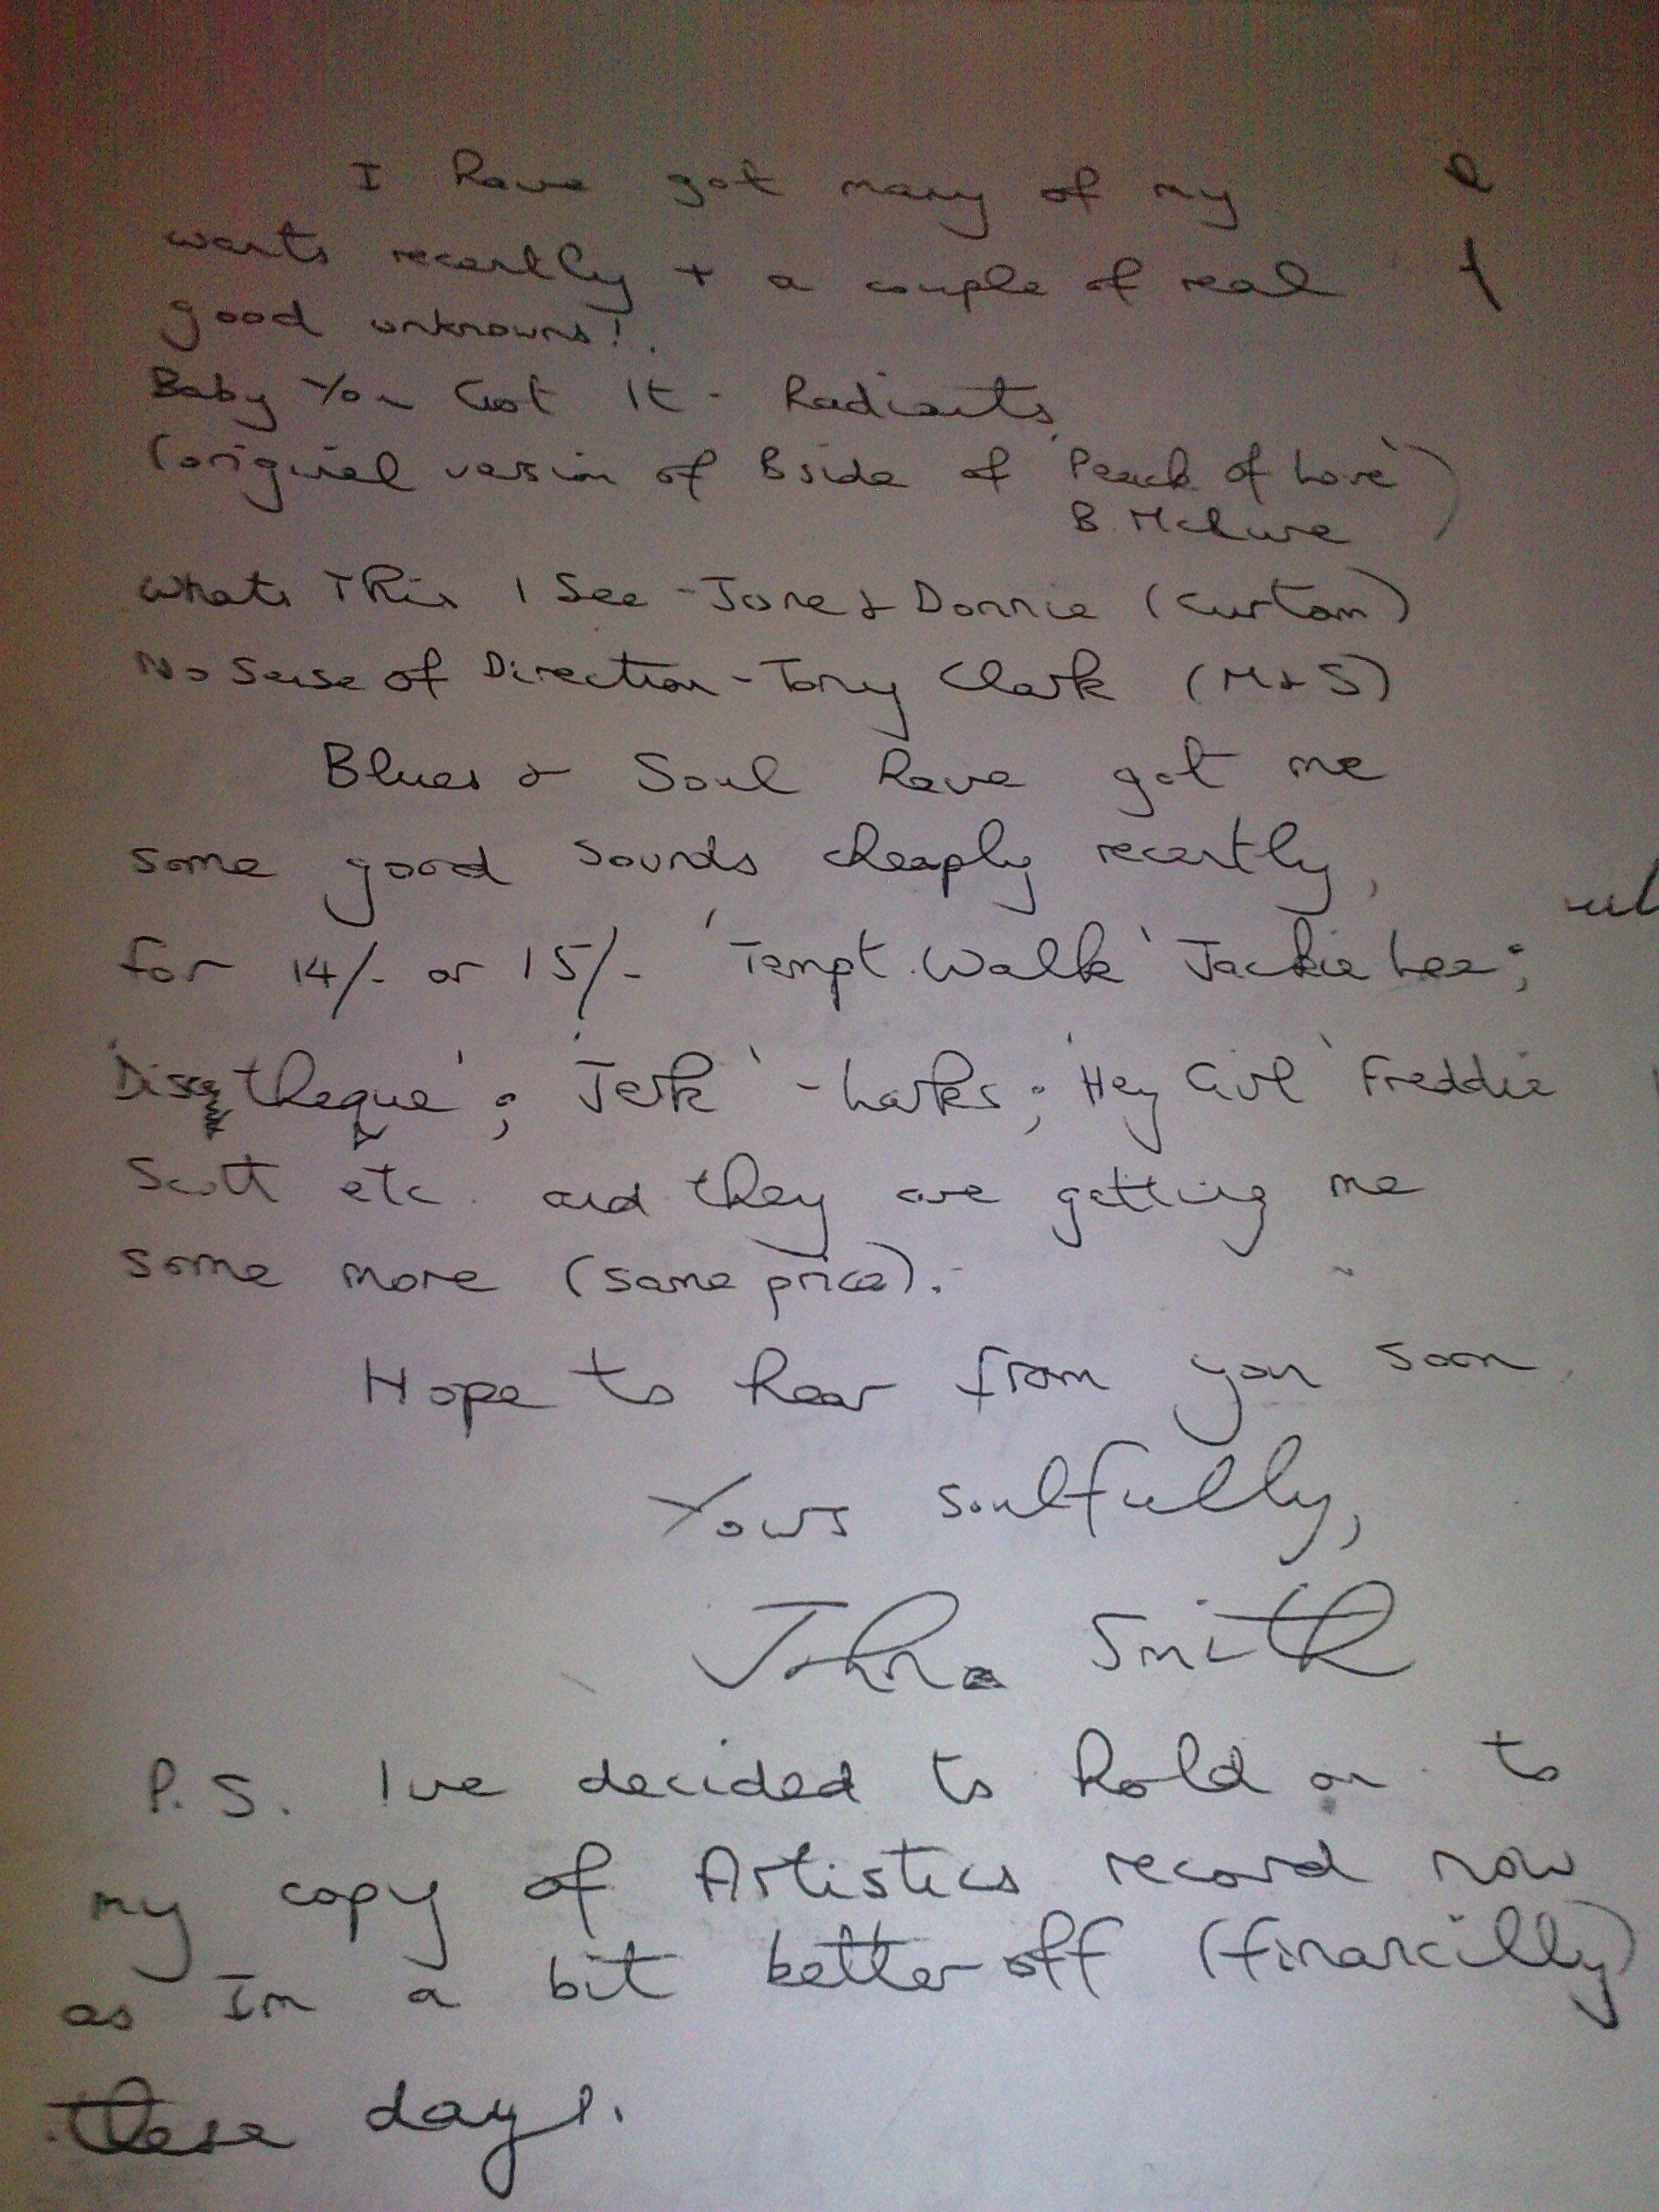 I have got many of my
wants recently + a couple of real
good unknowns!.
Baby You Got It - Radiants
(original version of Bside of 'Peack of Love')
B. McLure
Whats This I See - June & Donnie (Curtom)
No Sense of Direction - Tony Clark (M&S)
Blues & Soul have got me
some good sounds cheaply recently,
for 14/- or 15/- 'Tempt. Walk' Jackie Lee;
'Discotheque'; 'Jerk' - Larks; 'Hey Girl' Freddie
Scott etc. and they are getting me
some more (same price).
Hope to hear from you soon,
Yours soulfully,
John Smith
P.S. Ive decided to hold on to
my copy of Artistics record now
as Im a bit better off (financilly)
these days.